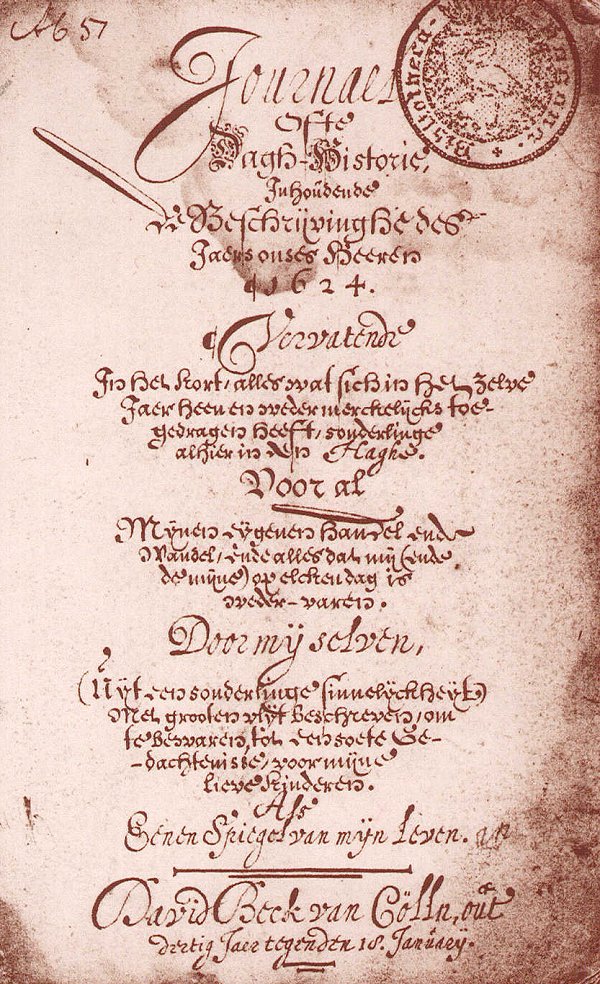 Ab 51
Journael
Bibliotheca
Ofte
Dagh-Historie,
Inhoudende
de Beschrijvinghe des
Jaers onses Heeren
1624.
Vervatende
In het kort, alles wat sich in het zelve
Jaer heen en weder merckelijcks toe-
gedragen heeft, sonderlinge
alhier in den Haghe.
Voor al
Mijnen eygenen handel ende
Wandel, ende alles dat mij (ende
de mijne) op elcken dag is
weder-varen.
Door mij selven,
(Uyt een sonderlinge sinnelyckheyt)
Met grooten vlijt beschreven, om
te bewaren, tot een soete Ge-
-dachtenisse, voor mijne
lieve Kinderen.
Als
Eenen Spiegel van mijn Leven.
David Beck van Cölln, oút
dertig Jaer tegen den 18. January.